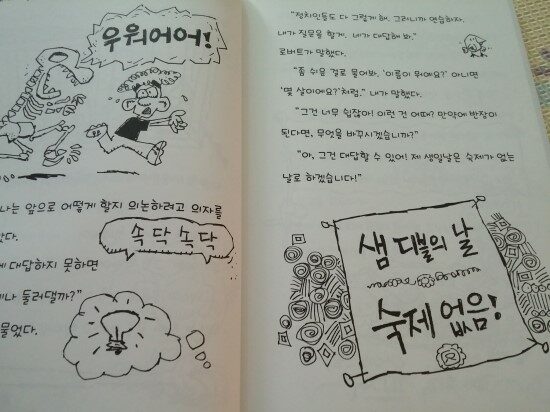 우워어어!
나는 앞으로 어떻게 할지 의논하려고 의자를
속닥속닥
대답하지 못하면
둘러댈까?"
물었다.
"정치인들도 다 그렇게 해. 그러니까 연습하자.
내가 질문을 할게. 네가 대답해 봐."
로버트가 말했다.
"좀 쉬운 걸로 물어봐. '이름이 뭐예요?' 아니면
'몇 살이에요?'처럼." 내가 말했다.
"그건 너무 쉽잖아! 이런 건 어때? 만약에 반장이
된다면, 무엇을 바꾸시겠습니까?"
"아, 그건 대답할 수 있어! 제 생일날은 숙제가 없는
날로 하겠습니다!"
샘 더블의 날
숙제 없음!